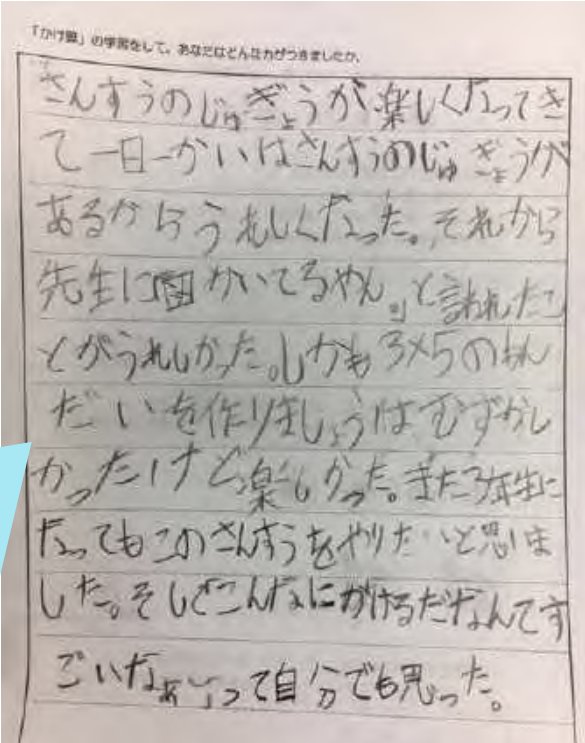 「かけ算」の学習をして、あなたはどんな力がつきましたか。
さんすうのじゅぎょうが楽しくなってき
て一日一かいはさんすうのじゅぎょうが
あるからうれしくなった。それから
先生に図かいてるやん。」と言われたこ
とがうれしかった。しかも3×5のもん
だいを作りましょうはむずかし
かったけど楽しかった。また3年生に
なってもこのさんすうをやりたいと思いま
した。そしてこんなにかけるだなんてす
ごいなぁ〜って自分でも思った。